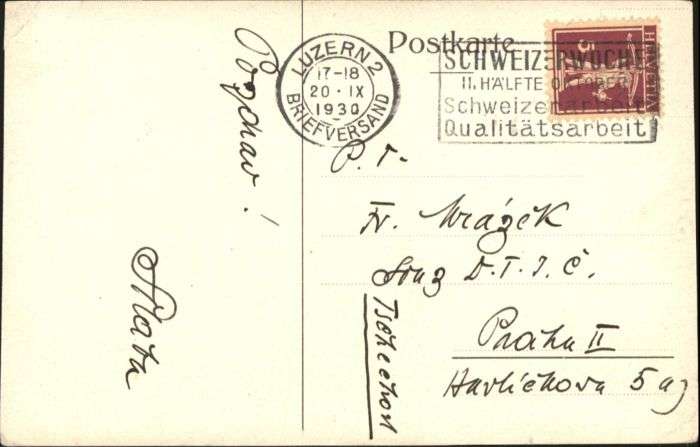 Postkarte
LUZERN 2
17-18
20 · IX
1930
BRIEFVERSAND
SCHWEIZERWOCHE
II. HÄLFTE OKTOBER
Schweizerarbeit
Qualitätsarbeit
HELVETIA
5
Pozdrav!
P. T.
Fr. Mrázek
Svaz D.T.J.Č.
Praha II
Havlíčkova 5
Tschechosl